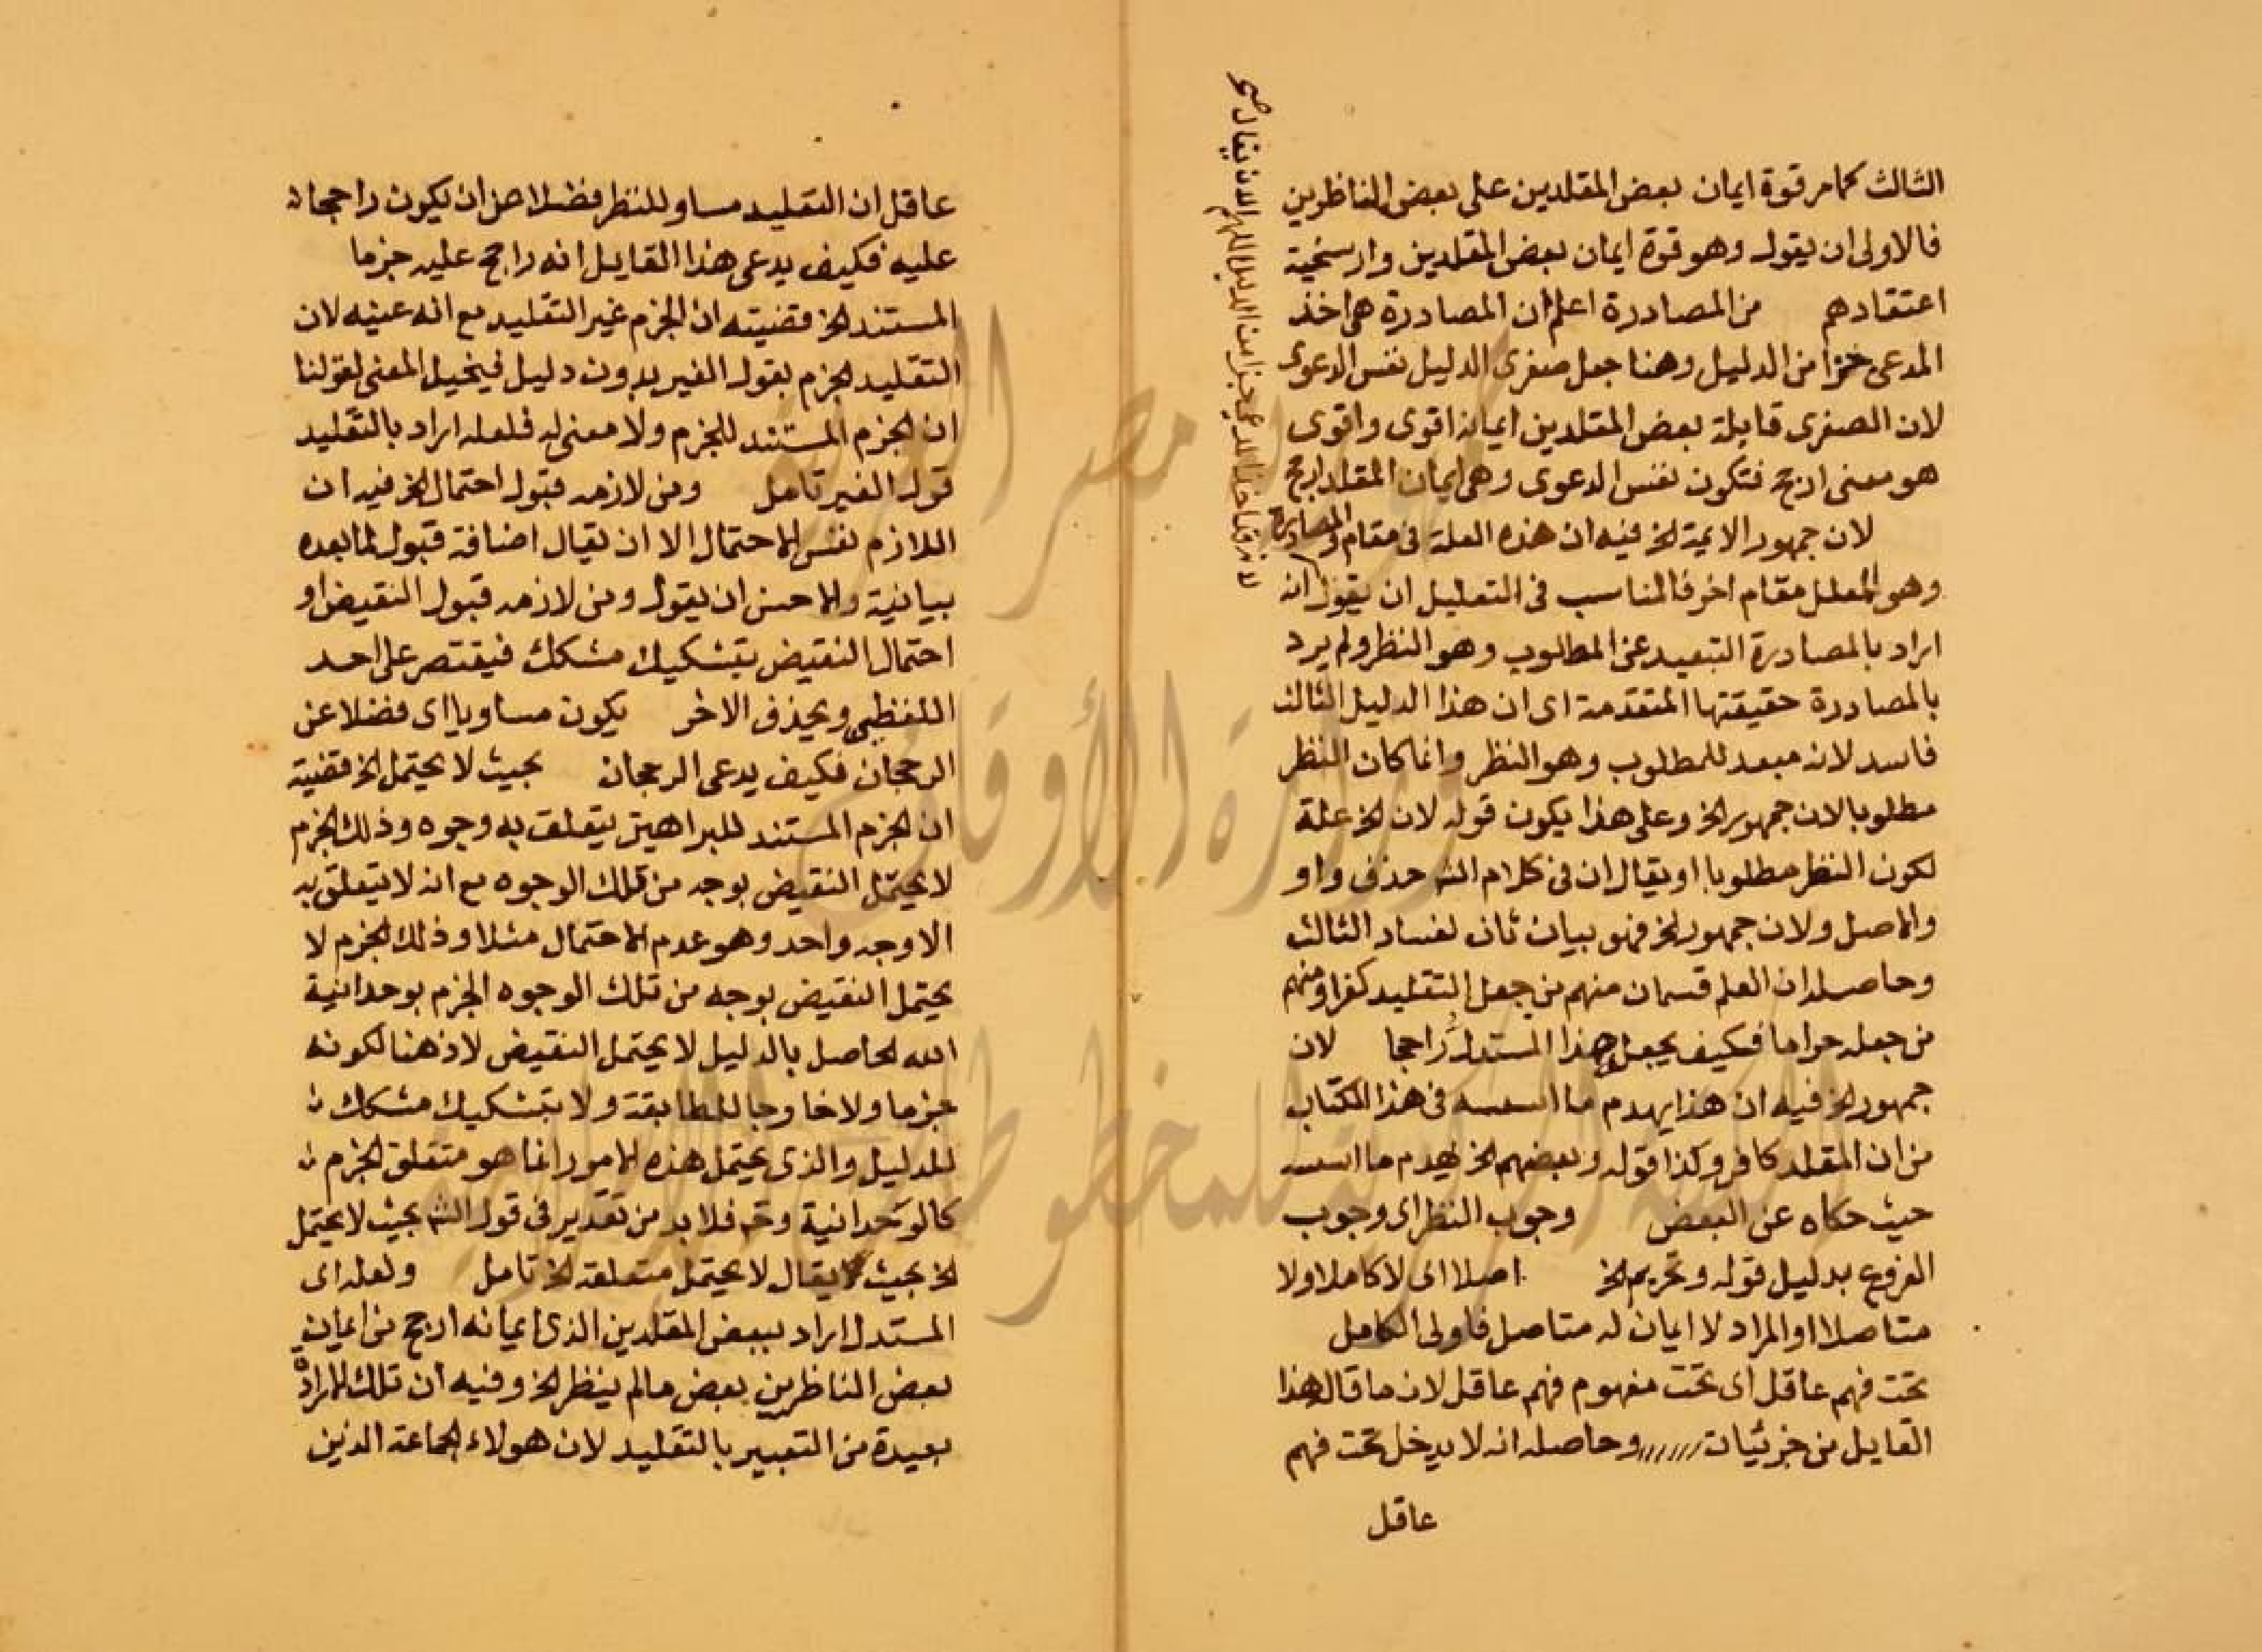 الثالث كمامر قوة ايمان بعض المقلدين على بعض المناظرين
فالاولى ان يقول وهو قوة ايمان بعض المقلدين وارسخية
اعتقادهم من المصادرة اعلم ان المصادرة هى اخذ
المدعى جزا من الدليل وهنا جعل صغرى الدليل نفس الدعوى
لان الصغرى قايلة بعض المقلدين ايمانه اقوى واقوى
هو معنى ارجح فتكون نفس الدعوى وهى ايمان المقلد ارجح
لان جمهور الايمة الخ فيه ان هذه العلة فى مقام المصادرة
وهو المعلل مقام اخر فالمناسب فى التعليل ان يقول انه
اراد بالمصادرة التبعيد عن المطلوب وهو النظر ولم يرد
بالمصادرة حقيقتها المتقدمة اى ان هذا الدليل الثالث
فاسد لانه مبعد للمطلوب وهو النظر وانما كان النظر
مطلوبا لان جمهور الخ وعلى هذا يكون قوله لان الخ علة
لكون النظر مطلوبا او يقال ان فى كلام الشه حذف واو
والاصل ولان جمهور الخ فهو بيان ثان لفساد الثالث
وحاصله ان العلم قسمان منهم من جعل التقليد كفرا ومنهم
من جعله حراما فكيف يجعل هذا المستدل راجحا لان
جمهور الخ فيه ان هذا يهدم ما اسسه فى هذا الكتاب
من ان المقلد كافر وكذا قوله وبعضهم الخ يهدم ما اسسه
حيث حكاه عن البعض وجوب النظر اى وجوب
الفروع بدليل قوله وتحريم الخ اصلا اى لا كاملا ولا
متاصلا او المراد لا ايمان له متاصل فاولى الكامل
تحت فهم عاقل اى تحت مفهوم فهم عاقل لان ما قاله هذا
القايل من جزئيات وحاصله انه لا يدخل تحت فهم
عاقل
عاقل ان التقليد مساو للنظر فضلا عن ان يكون راجحا
عليه فكيف يدعى هذا القايل انه راجح عليه جزما
المستند الخ قضيته ان الجزم غير التقليد مع انه عينه لان
التقليد الجزم بقول الغير بدون دليل فينحل المعنى لقولنا
ان الجزم المستند للجزم ولا معنى له فلعله اراد بالتقليد
قول الغير تامل ومن لازمه قبول احتمال الخ فيه ان
اللازم نفس الاحتمال الا ان يقال اضافة قبول لما بعده
بيانية والاحسن ان يقول ومن لازمه قبول النقيض او
احتمال النقيض بتشكيك مشكك فيقتصر على احد
اللفظين ويحذف الاخر يكون مساويا اى فضلا عن
الرجحان فكيف يدعى الرجحان بحيث لا يحتمل الخ قضية
ان الجزم المستند للبراهين يتعلق به وجوه وذلك الجزم
لا يحتمل النقيض بوجه من تلك الوجوه مع انه لا يتعلق به
الا وجه واحد وهو عدم الاحتمال مثلا وذلك الجزم لا
يحتمل النقيض بوجه من تلك الوجوه الجزم بوحدانية
الله الحاصل بالدليل لا يحتمل النقيض لا ذهنا لكونه
جزما ولا خارجا للمطابقة ولا بتشكيك مشكك
للدليل والذى يحتمل هذه الامور انما هو متعلق الجزم
كالوحدانية وح فلا بد من تقدير فى قول الشه بحيث لا يحتمل
الخ بحيث يقال لا يحتمل متعلقه الخ تامل ولعله اى
المستدل اراد ببعض المقلدين الذى ايمانه ارجح من ايمان
بعض المناظرين بعض مالم ينظر الخ وفيه ان تلك الارادة
بعيدة من التعبير بالتقليد لان هولاء الجماعة الذين